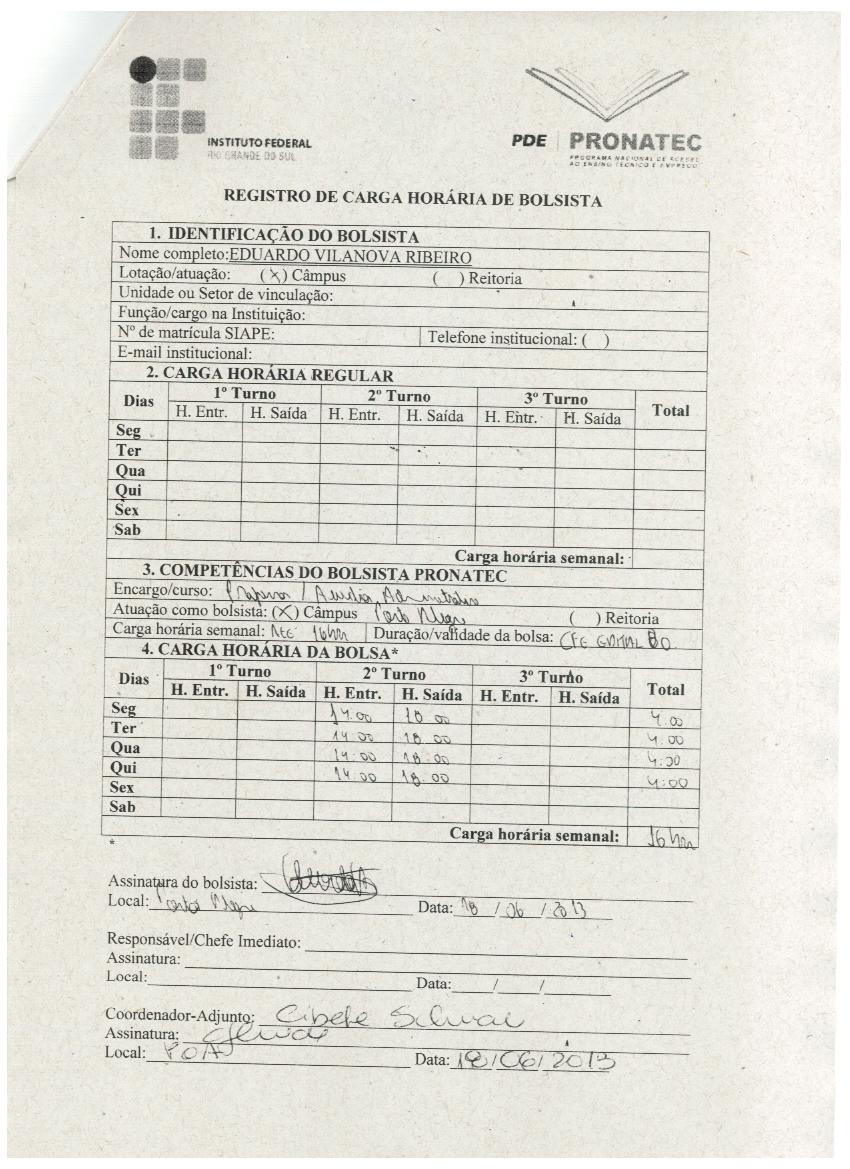 INSTITUTO FEDERAL
RIO GRANDE DO SUL
PDE PRONATEC
PROGRAMA NACIONAL DE ACESSO
AO ENSINO TÉCNICO E EMPREGO
REGISTRO DE CARGA HORÁRIA DE BOLSISTA
1. IDENTIFICAÇÃO DO BOLSISTA
Nome completo:EDUARDO VILANOVA RIBEIRO
Lotação/atuação: (X) Câmpus ( ) Reitoria
Unidade ou Setor de vinculação:
Função/cargo na Instituição:
Nº de matrícula SIAPE: Telefone institucional: ( )
E-mail institucional:
2. CARGA HORÁRIA REGULAR
Dias 1º Turno 2º Turno 3º Turno Total
H. Entr. H. Saída H. Entr. H. Saída H. Entr. H. Saída
Seg
Ter
Qua
Qui
Sex
Sab
Carga horária semanal:
3. COMPETÊNCIAS DO BOLSISTA PRONATEC
Encargo/curso: Professor / Auxiliar Administrativo
Atuação como bolsista: (X) Câmpus Porto Alegre ( ) Reitoria
Carga horária semanal: Até 16hrs Duração/validade da bolsa: CFE EDITAL
4. CARGA HORÁRIA DA BOLSA*
Dias 1º Turno 2º Turno 3º Turno Total
H. Entr. H. Saída H. Entr. H. Saída H. Entr. H. Saída
Seg 14:00 18:00 4:00
Ter 14:00 18:00 4:00
Qua 14:00 18:00 4:00
Qui 14:00 18:00 4:00
Sex
Sab
Carga horária semanal: 16 hrs
*
Assinatura do bolsista:
Local: Porto Alegre Data: 18 / 06 / 2013
Responsável/Chefe Imediato:
Assinatura:
Local: Data: / /
Coordenador-Adjunto: Cibele Schwanke
Assinatura:
Local: POA Data: 18/06/2013